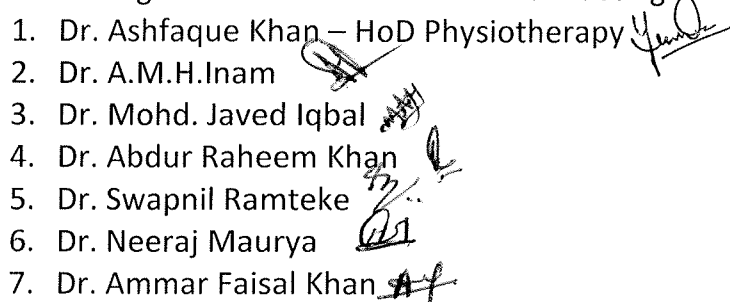 1. Dr. Ashfaque Khan – HoD Physiotherapy
2. Dr. A.M.H.Inam
3. Dr. Mohd. Javed Iqbal
4. Dr. Abdur Raheem Khan
5. Dr. Swapnil Ramteke
6. Dr. Neeraj Maurya
7. Dr. Ammar Faisal Khan